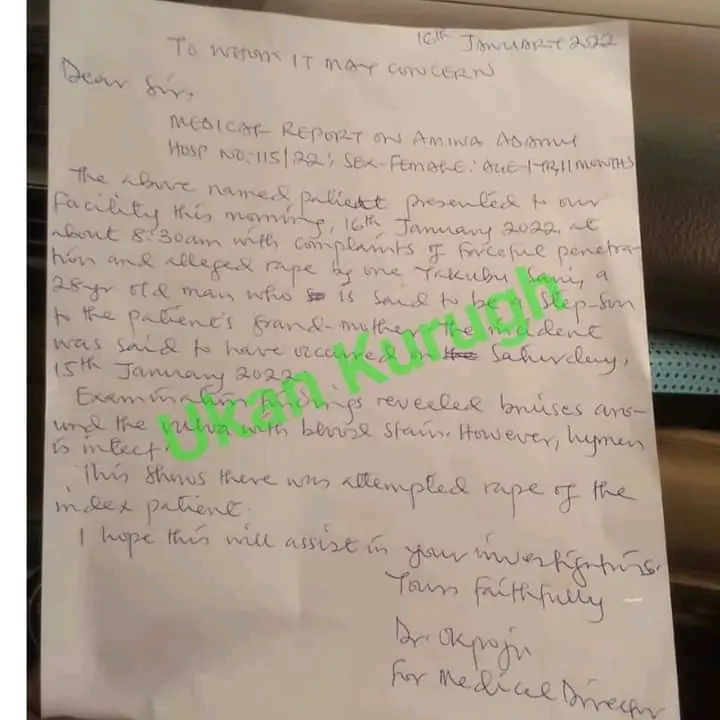 16th JANUARY 2022
TO WHOM IT MAY CONCERN
Dear Sir,
MEDICAL REPORT ON AMINA ADAMU
HOSP NO: 115/22; SEX-FEMALE: AGE-1YR,11MONTHS
The above named patient presented to our
facility this morning, 16th January 2022, at
about 8:30am with complaints of forceful penetra-
tion and alleged rape by one Yakubu Sani, a
28yr old man who is said to be a step-son
to the patient's grand-mother. The incident
was said to have occurred on Saturday,
15th January 2022.
Examination findings reveeled bruises aro-
und the vulva with stain. However, hymen
is intect.
This shows there was attempted rape of the
index patient.
I hope this will assist in your investigations.
Yours Faithfully
Dr. Okpoju
For Medical Director
Ukan Kurugh